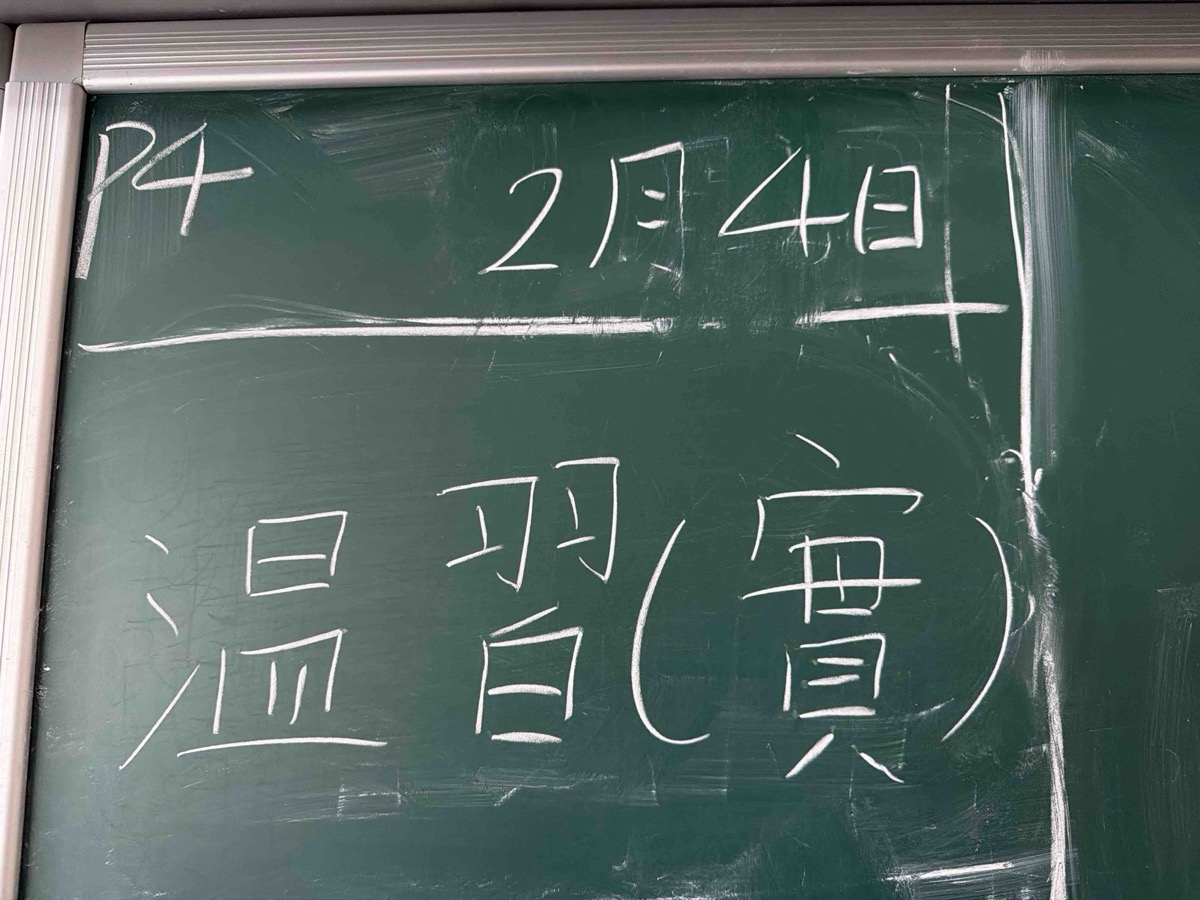 P4 2月4日
溫習(實)